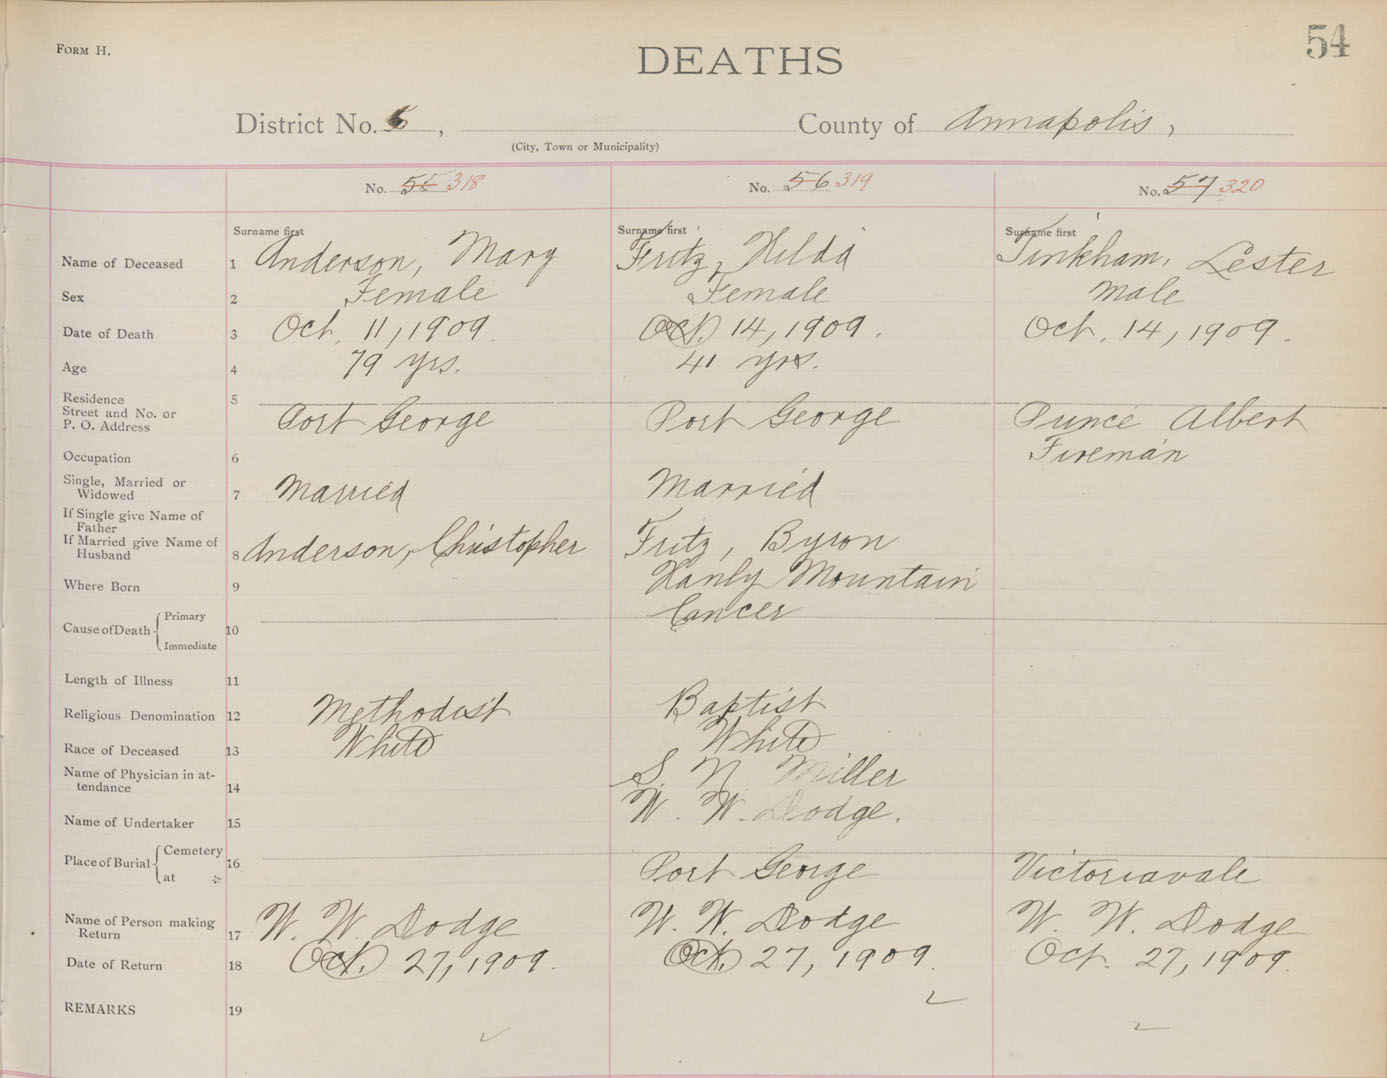 FORM H.
54
DEATHS
District No. 5, County of Annapolis,
(City, Town or Municipality)
No. 55 318 No. 56 319 No. 57 320
Surname first Surname first Surname first
Name of Deceased 1 Anderson, Mary Fritz, Hilda Tinkham, Lester
Sex 2 Female Female Male
Date of Death 3 Oct. 11, 1909. Oct. 14, 1909. Oct. 14, 1909.
Age 4 79 yrs. 41 yrs.
Residence 5
Street and No. or
P. O. Address Port George Port George Prince Albert
Occupation 6 Fireman
Single, Married or
Widowed 7 Married Married
If Single give Name of
Father
If Married give Name of
Husband 8 Anderson, Christopher Fritz, Byron
Where Born 9 Hanly Mountain
Cause of Death Primary 10 Cancer
Immediate
Length of Illness 11
Religious Denomination 12 Methodist Baptist
Race of Deceased 13 White White
Name of Physician in at-
tendance 14 S. N. Miller
Name of Undertaker 15 W. W. Dodge.
Place of Burial Cemetery 16
at Port George Victoriavale
Name of Person making
Return 17 W. W. Dodge W. W. Dodge W. W. Dodge
Date of Return 18 Oct. 27, 1909. Oct. 27, 1909. Oct. 27, 1909.
REMARKS 19